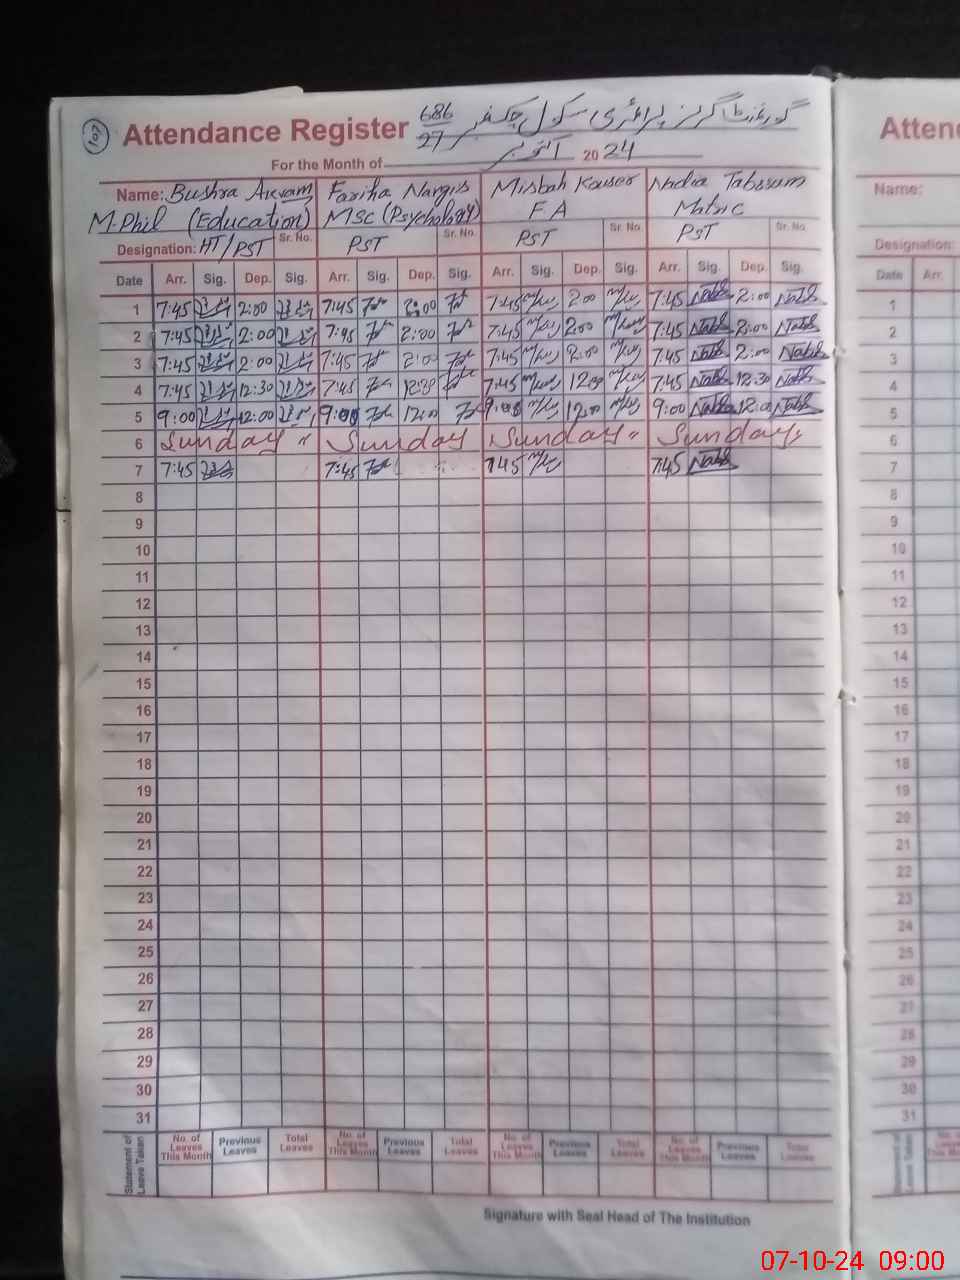 107 Attendance Register 686/27 گورنمنٹ گرلز پرائمری سکول چک نمبر
For the Month of اکتوبر 2024
Name: Bushra Fariha Nargis Misbah Kouser Nadia Tabssum
M.Phil (Education) MSC (Psychology) FA Matric
Designation: HT/PST Sr. No. PST Sr. No. PST Sr. No. PST Sr. No.
Date Arr. Sig. Dep. Sig. Arr. Sig. Dep. Sig. Arr. Sig. Dep. Sig. Arr. Sig. Dep. Sig.
1 7:45 2:00 7:45 2:00 7:45 2:00 7:45 2:00
2 7:45 2:00 7:45 2:00 7:45 2:00 7:45 2:00
3 7:45 2:00 7:45 2:00 7:45 2:00 7:45 2:00
4 7:45 12:30 7:45 12:30 7:45 7:45 12:30
5 9:00 12:00 9:00 12:00 9:00 12:00 9:00 12:00
6 Sunday Sunday Sunday Sunday
7 7:45 7:45 7:45 7:45
8
9
10
11
12
13
14
15
16
17
18
19
20
21
22
23
24
25
26
27
28
29
30
31
Statement of Leave Taken
No. of Leaves This Month Previous Leaves Total Leaves No. of Leaves This Month Previous Leaves Total Leaves No. of Leaves This Month Previous Leaves Total Leaves No. of Leaves This Month Previous Leaves Total Leaves
Signature with Seal Head of The Institution
Atten
Name:
Designation:
Date Arr.
1
2
3
4
5
6
7
8
9
10
11
12
13
14
15
16
17
18
19
20
21
22
23
24
25
26
27
28
29
30
31
07-10-24 09:00